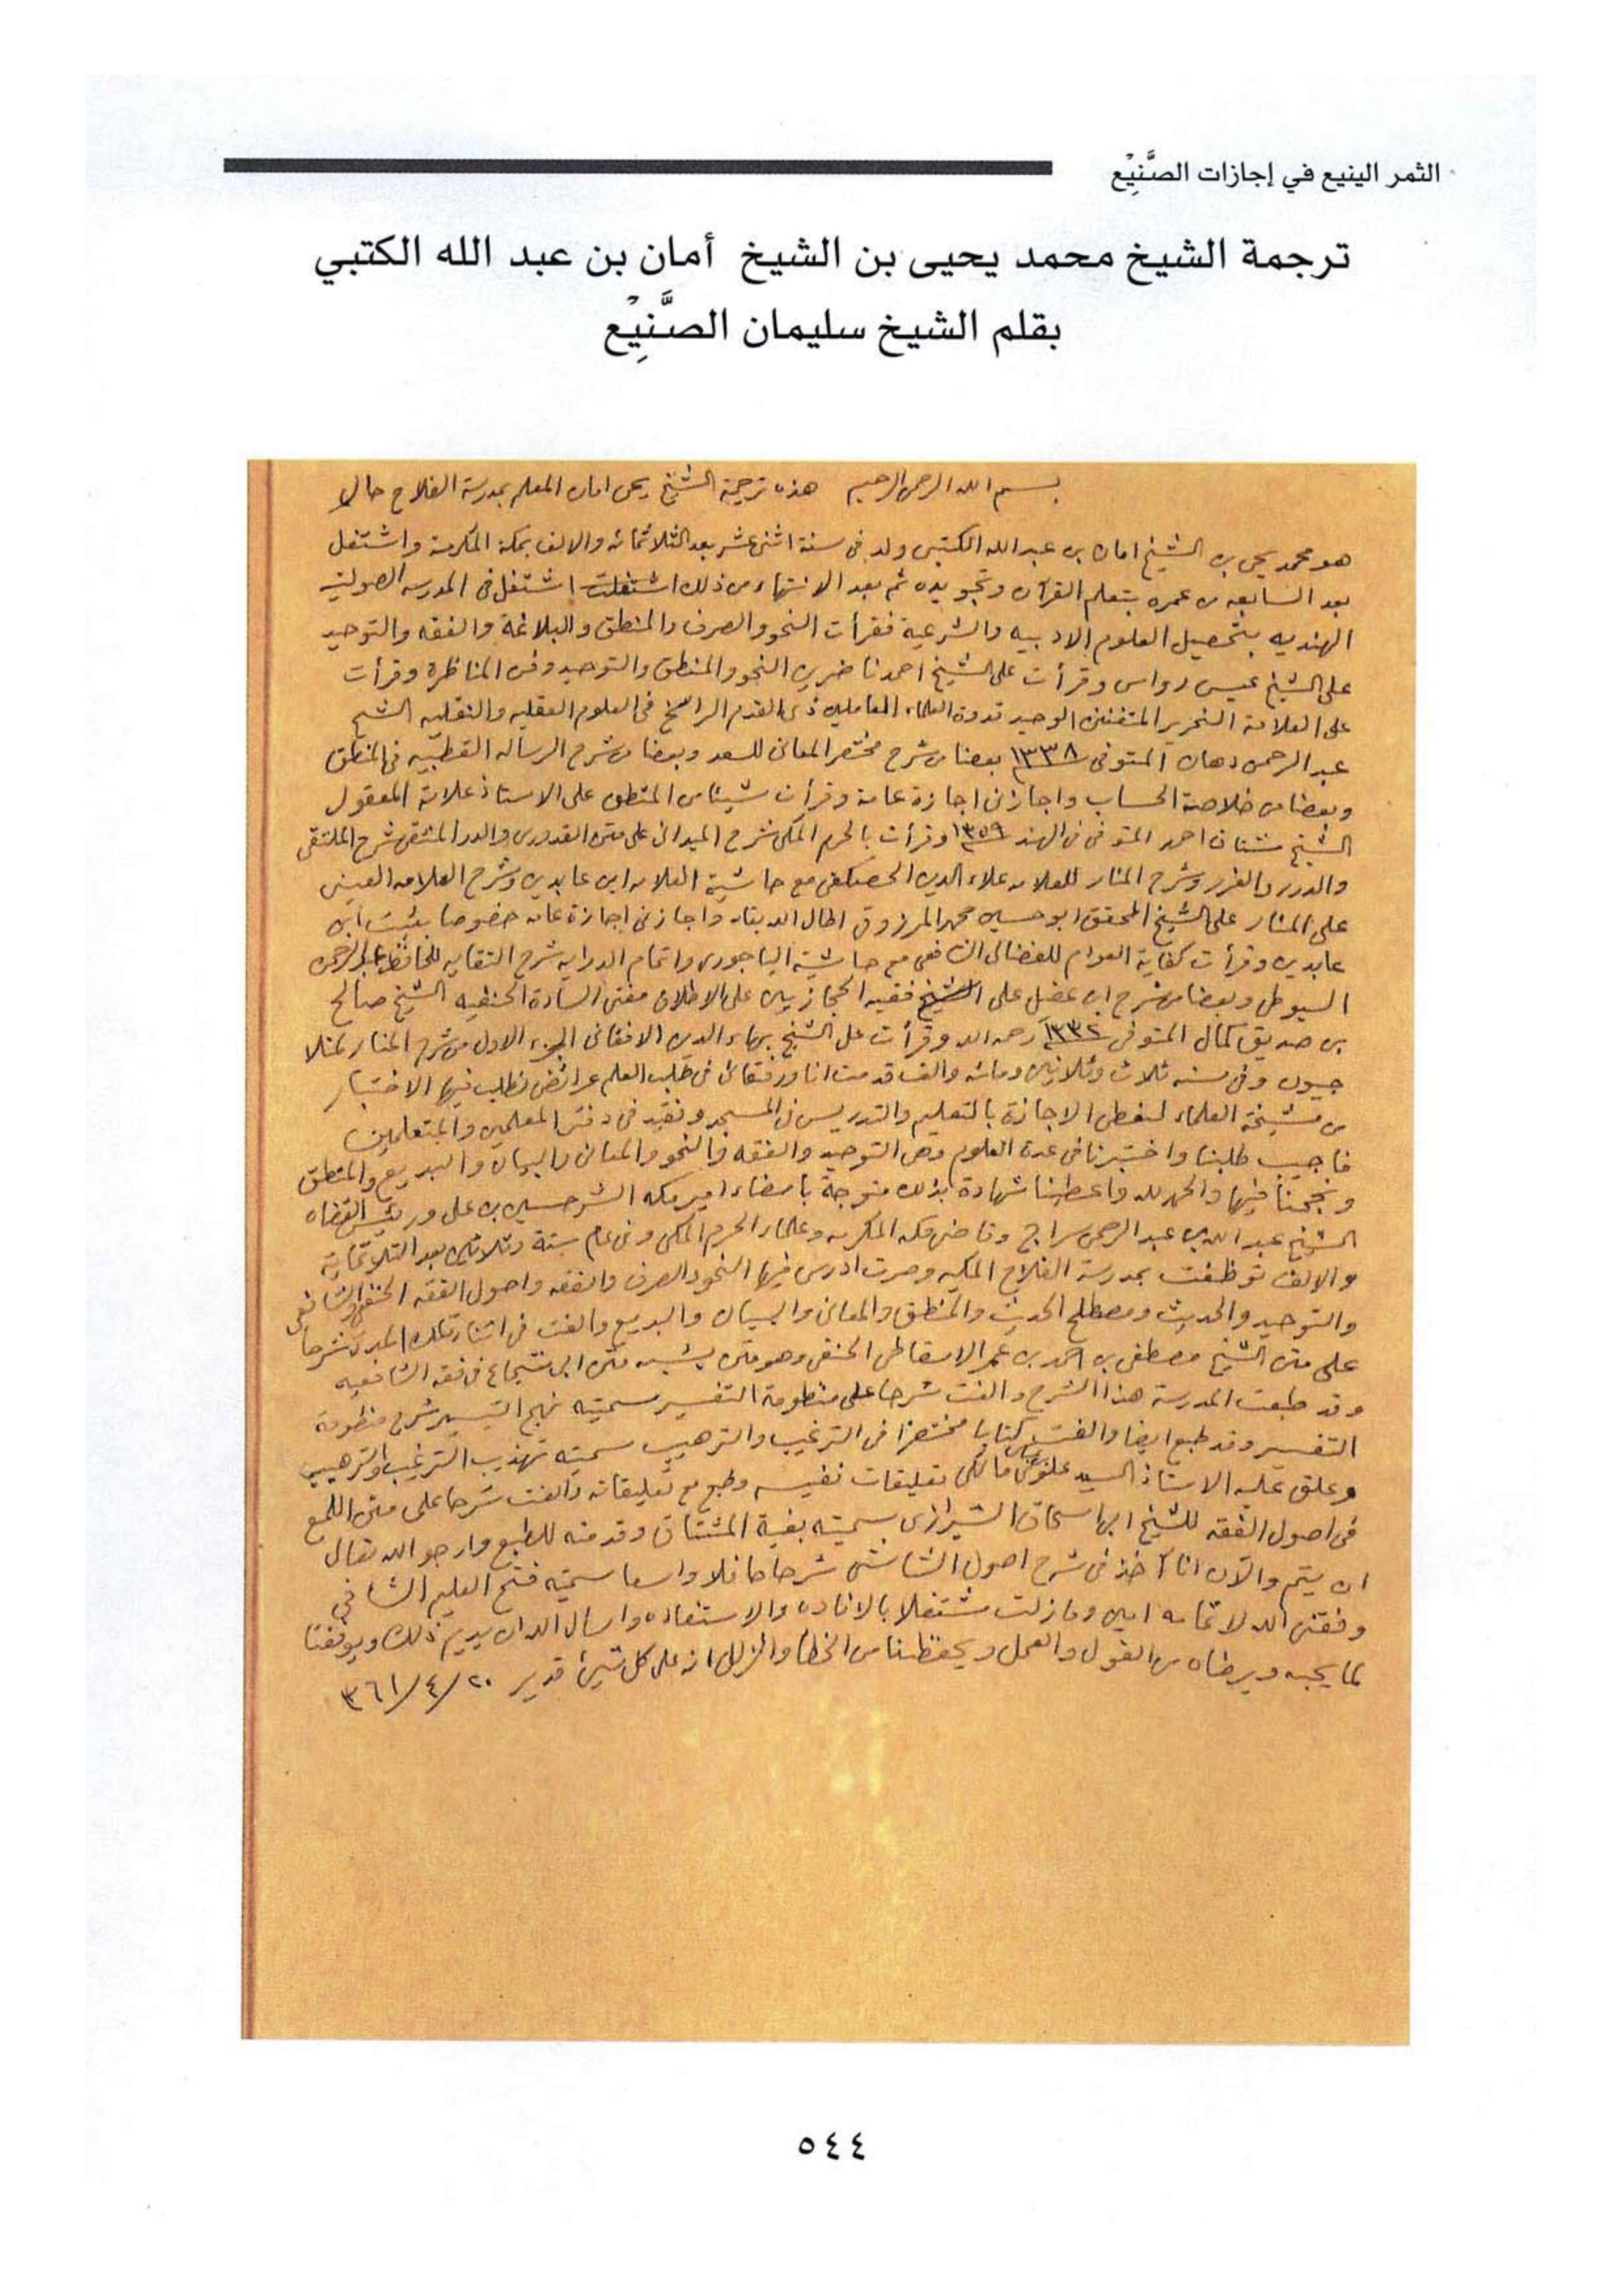 الثمر الينيع في إجازات الصَّنِيْع
ترجمة الشيخ محمد يحيى بن الشيخ أمان بن عبد الله الكتبي
بقلم الشيخ سليمان الصَّنِيْع
بسم الله الرحمن الرحيم هذه ترجمة الشيخ يحى امان المعلم بمدرسة الفلاح حالا
هو محمد يحى بن الشيخ امان بن عبد الله الكتبى ولد فى سنة اثنى عشر بعد الثلاثمائه والالف بمكة المكرمة واشتغل
بعد السابعه من عمره بتعلم القرآن وتجويده ثم بعد الانتهاء من ذلك اشتغلت اشتغل فى المدرسه الصولتيه
الهنديه بتحصيل العلوم الادبيه والشرعية فقرأت النحو والصرف والمنطق والبلاغة والفقه والتوحيد
على الشيخ عيسى رواس وقرأت على الشيخ احمد ناضرين النحو والمنطق والتوحيد وفن المناظرة وقرأت
على العلامة النحرير المتفنن الوحيد قدوة العلماء العاملين ذى القدم الراسخ فى العلوم العقليه والنقليه الشيخ
عبد الرحمن دهان المتوفى ١٣٣٨ بعضا من شرح مختصر المعانى للسعد وبعضا من شرح الرساله القطبيه فى المنطق
وبعضا من خلاصة الحساب واجازنى اجازة عامة وقرأت شيئا من المنطق على الاستاذ علامة المعقول
الشيخ مشتاق احمد المتوفى فى الهند ١٣٥٩ وقرأت بالحرم المكى شرح الميدانى على متن القدورى والدر المنتقى شرح الملتقى
والدرر والغرر وشرح المنار للعلامه علاء الدين الحصكفى مع حاشية العلامه ابن عابدين وشرح العلامه العينى
على المنار على الشيخ المحقق ابو حسين محمد المرزوقى اطال الله بقاه واجازنى اجازة عامه خصوصا بثبت ابن
عابدين وقرأت كفاية العوام للفضالى الشافعى مع حاشية الباجورى واتمام الدرايه شرح النقايه للحافظ عبد الرحمن
السيوطى وبعضا من شرح ابن عقيل على الشيخ فقيه الحجازيين على الاطلاق مفتى السادة الحنفيه الشيخ صالح
بن صديق كمال المتوفى ١٣٣٢ رحمه الله وقرأت على الشيخ بهاء الدين الافغانى الجزء الاول من شرح المنار لملا
جيون وفى سنه ثلاث وثلاثين ومائه والف قدمت انا ورفقائى فى طلب العلم عرائض نطلب فيها الاختبار
من مشيخة العلماء لنعطى الاجازة بالتعليم والتدريس فى المسجد ونقيد فى دفتر المعلمين والمتعلمين
فاجيب طلبنا واختبرنا فى عدة العلوم وهى التوحيد والفقه والنحو والمعانى والبيان والبديع والمنطق
ونجحنا فيها والحمد لله واعطينا شهادة بذلك متوجة بامضاء امير مكه الشرحسين بن على ورئيس القضاه
الشيخ عبد الله بن عبد الرحمن سراج وقاضى مكه المكرمه وعلماء الحرم المكى وفى عام ستة وثلاثين بعد الثلاثماية
والالف توظفت بمدرسة الفلاح المكيه وصرت ادرس فيها النحو والصرف والفقه واصول الفقه الحنفى والشافعى
والتوحيد والحديث ومصطلح الحديث والمنطق والمعانى والبيان والبديع والفت فى اثناء تلك المدة شرحا
على متن الشيخ مصطفى بن احمد بن عمر الاسقاطى الحنفى وهو متن يشبه متن ابى شجاع فى فقه الشافعيه
وقد طبعت المدرسة هذا الشرح والفت شرحا على منظومة التفسير سميته نهج التيسير شرح منظومة
التفسير وقد طبع ايضا والفت كتابا مختصرا فى الترغيب والترهيب سميته تهذيب الترغيب والترهيب
وعلق عليه الاستاذ السيد علوى مالكى تعليقات نفيسه وطبع مع تعليقاته والفت شرحا على متن اللمع
فى اصول الفقه للشيخ ابى اسحاق الشيرازى سميته بغية المشتاق وقدمته للطبع وارجو الله تعالى
ان يتم والآن انا آخذ فى شرح اصول الشاشى شرحا حافلا واسعا سميته فتح العليم الشافي
وفقنى الله لاتمامه امين وما زلت مشتغلا بالافاده والاستفاده واسال الله ان يديم ذلك ويوفقنا
لما يحبه ويرضاه من القول والعمل ويحفظنا من الخطأ والزلل انه على كل شيئ قدير ٢٠/٤/٣٦١
٥٤٤